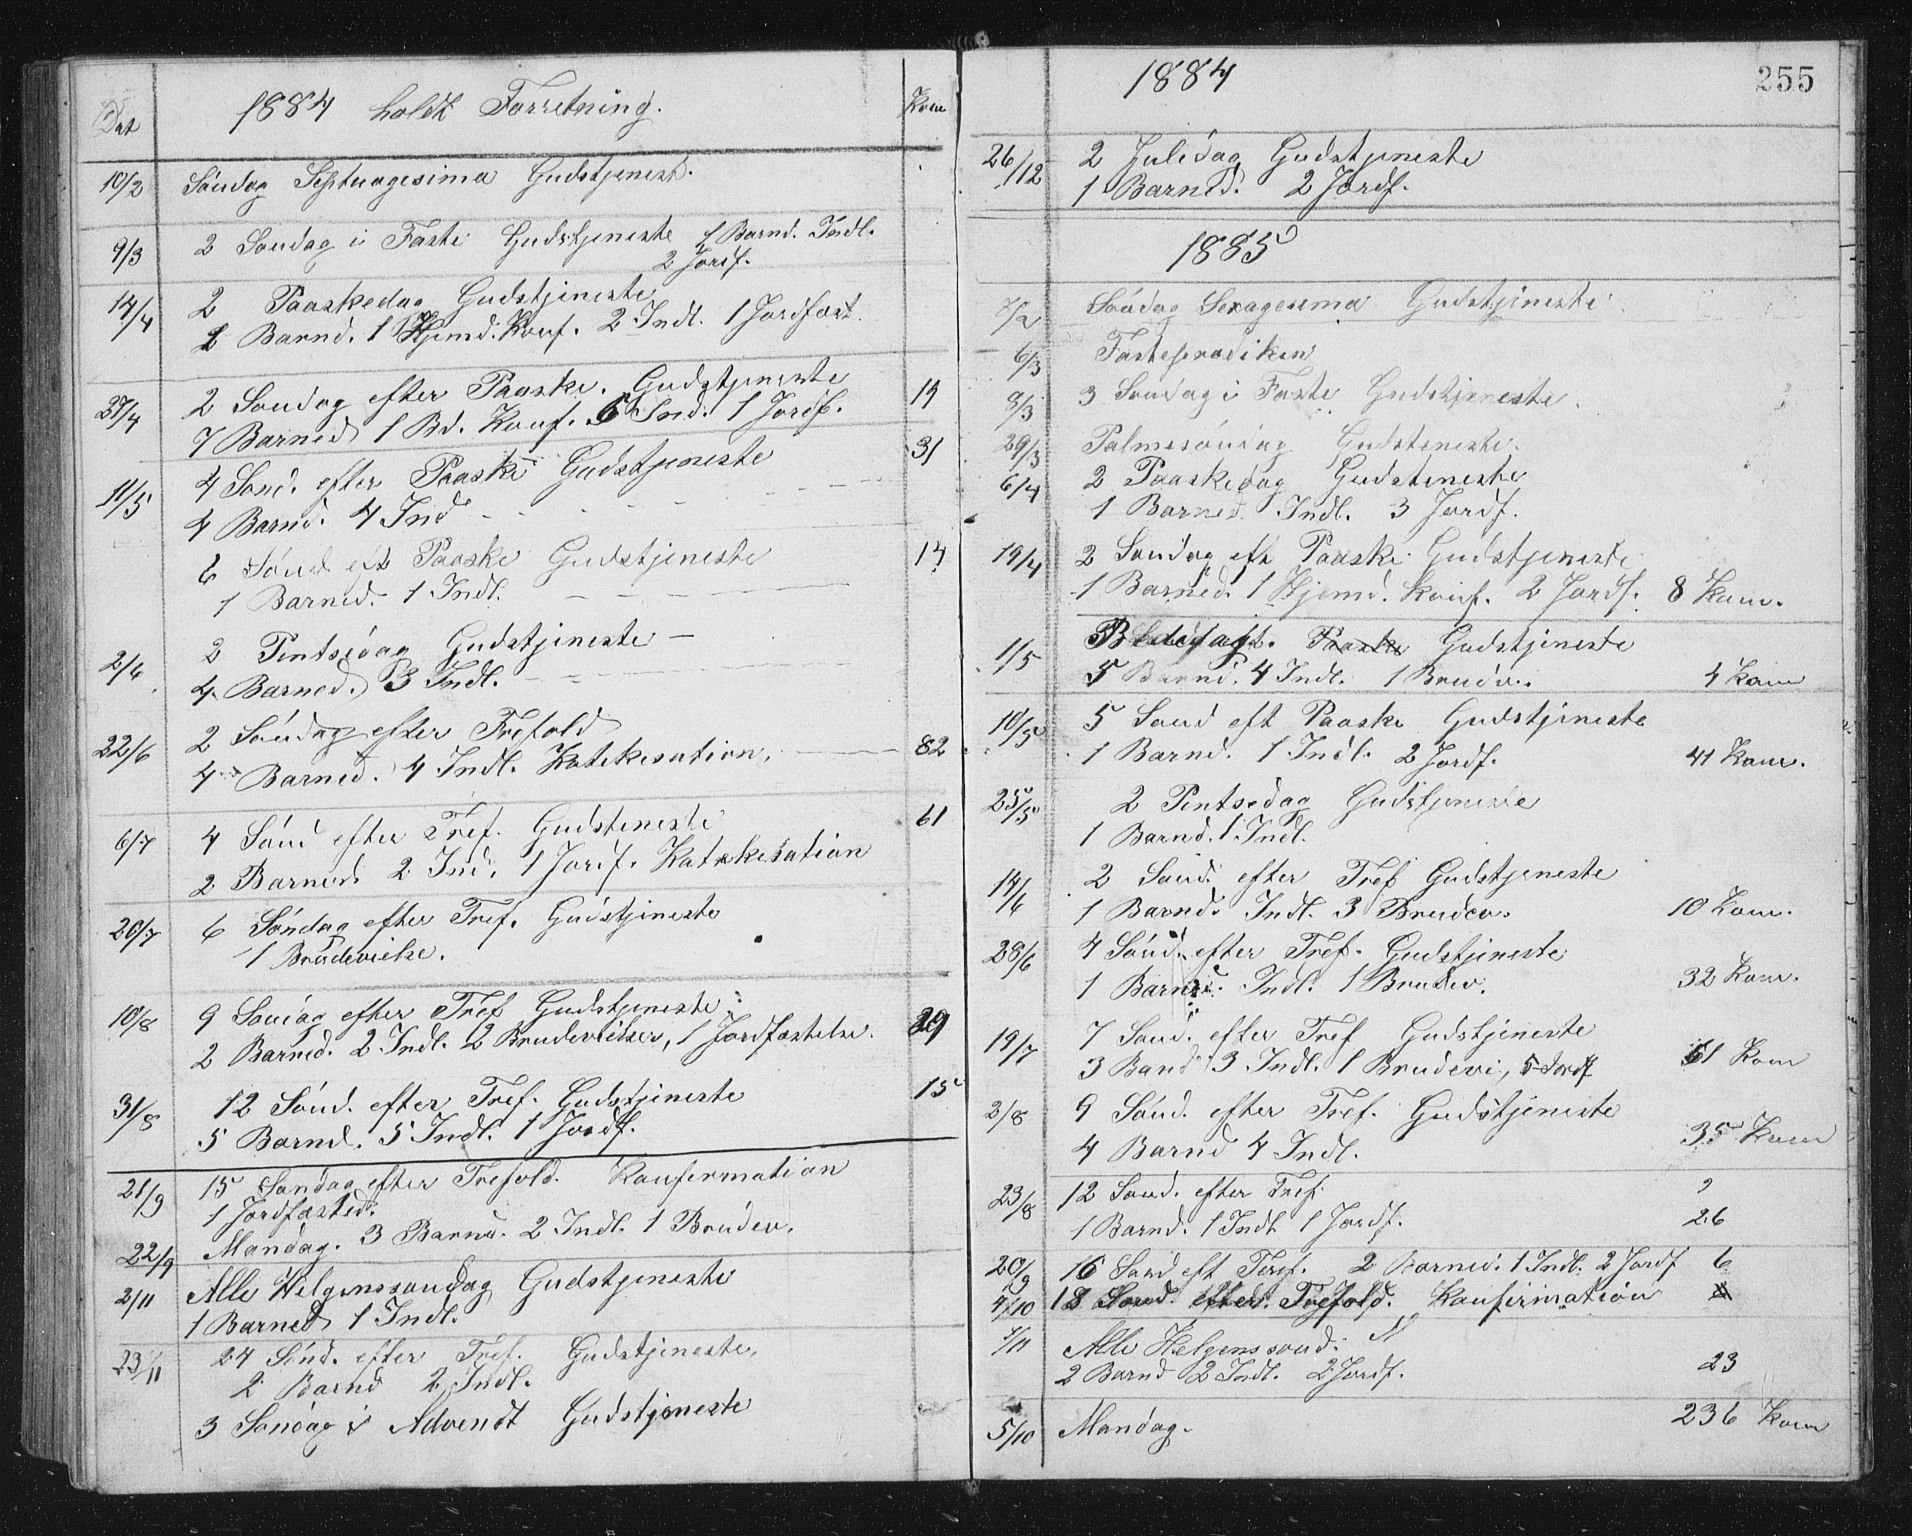 Dat 1884 holdt Forretning. Kom
10/2 Søndag Septuagesima Gudstjenest.
9/3 2 Søndag i Faste Gudstjeneste 1 Barnd. Indl.
2 Jordf.
14/4 2 Paaskedag Gudstjeneste
2 Barnd. 1 Hjemd. Konf. 2 Indl. 1 Jordfæst.
27/4 2 Søndag efter Paaske. Gudstjeneste 19
7 Barned 1 Bd. Konf. 6 Ind. 1 Jordf.
11/5 4 Sønd. efter Paaske Gudstjeneste 31
4 Barnd. 4 Ind
6 Sønd eft Paaske Gudstjeneste 14
1 Barned. 1 Indl.
2/6 2 Pintsedag Gudstjeneste
4 Barned. 3 Indl.
22/6 2 Søndag efter Trefold
4 Barned. 4 Indl. Katekesation. 82
6/7 4 Sønd efter Tref. Gudsteneste 61
2 Barned. 2 Ind. 1 Jordf. Katekesation
20/7 6 Søndag efter Tref. Gudstjeneste
1 Brudevielse.
10/8 9 Søndag efter Tref Gudstjeneste
2 Barned. 2 Indl. 2 Brudevielser, 1 Jordfæstelse. 29
31/8 12 Sønd. efter Tref. Gudstjeneste 15
5 Barnd. 5 Indl. 1 Jordf.
21/9 15 Søndag efter Trefold. Konfirmation
1 Jordfæsted.
22/9 Mandag. 3 Barnd. 2 Indl. 1 Brudev.
2/11 Alle Helgenssøndag Gudstjeneste
1 Barned 1 Indl.
23/11 24 Sønd. efter Tref. Gudstjeneste,
2 Barnd 2 Indl.
3 Søndag i Advendt Gudstjeneste
1884 255
26/12 2 Juledag Gudstjeneste
1 Barned. 2 Jordf.
1885
8/2 Søndag Sexagesima Gudstjeneste
6/3 Fasteprædiken
8/3 3 Søndag i Faste Gudstjeneste.
29/3 Palmesøndag Gudsteneste.
6/4 2 Paaskedag Gudsteneste
1 Barned Indl. 3 Jordf.
19/4 2 Søndag eft Paaske Gudstjeneste
1 Barned. 1 Hjemd. Konf. 2 Jordf. 8 Kom.
1/5 Bededagt. Paaske Gudstjeneste
5 Barnd. 4 Indl. 1 Brudv. 4 Kom
10/5 5 Sønd eft Paaske Gudstjeneste
1 Barnd. 1 Indl. 2 Jordf. 41 Kom.
25/5 2 Pintsedag Gudstjeneste
1 Barnd. 1 Indl.
14/6 2 Sønd. efter Tref Gudstjeneste
1 Barnd. Indl. 3 Brudev. 10 Kom.
28/6 4 Sønd. efter Tref. Gudstjeneste
1 Barned. Indl. 1 Brudev. 32 Kom.
19/7 7 Sønd. efter Tref Gudstjeneste
3 Band 3 Indl. 1 Brudevi, 5 Jordf 61 Kom
2/8 9 Sønd. efter Tref. Gudstjeneste
4 Barnd 4 Indl. 35 Kom
23/8 12 Sønd. efter Tref.
1 Barnd. 1 Indl 1 Jordf. 26
20/9 16 Sønd eft Tref. 2 Barned. 1 Indl. 2 Jordf 6
4/10 18 Sønd. efter. Trefold. Konfirmation
1/11 Alle Helgenssønd.
2 Barnd 2 Indl. 2 Jordf. 23
5/10 Mandag. 236 Kom